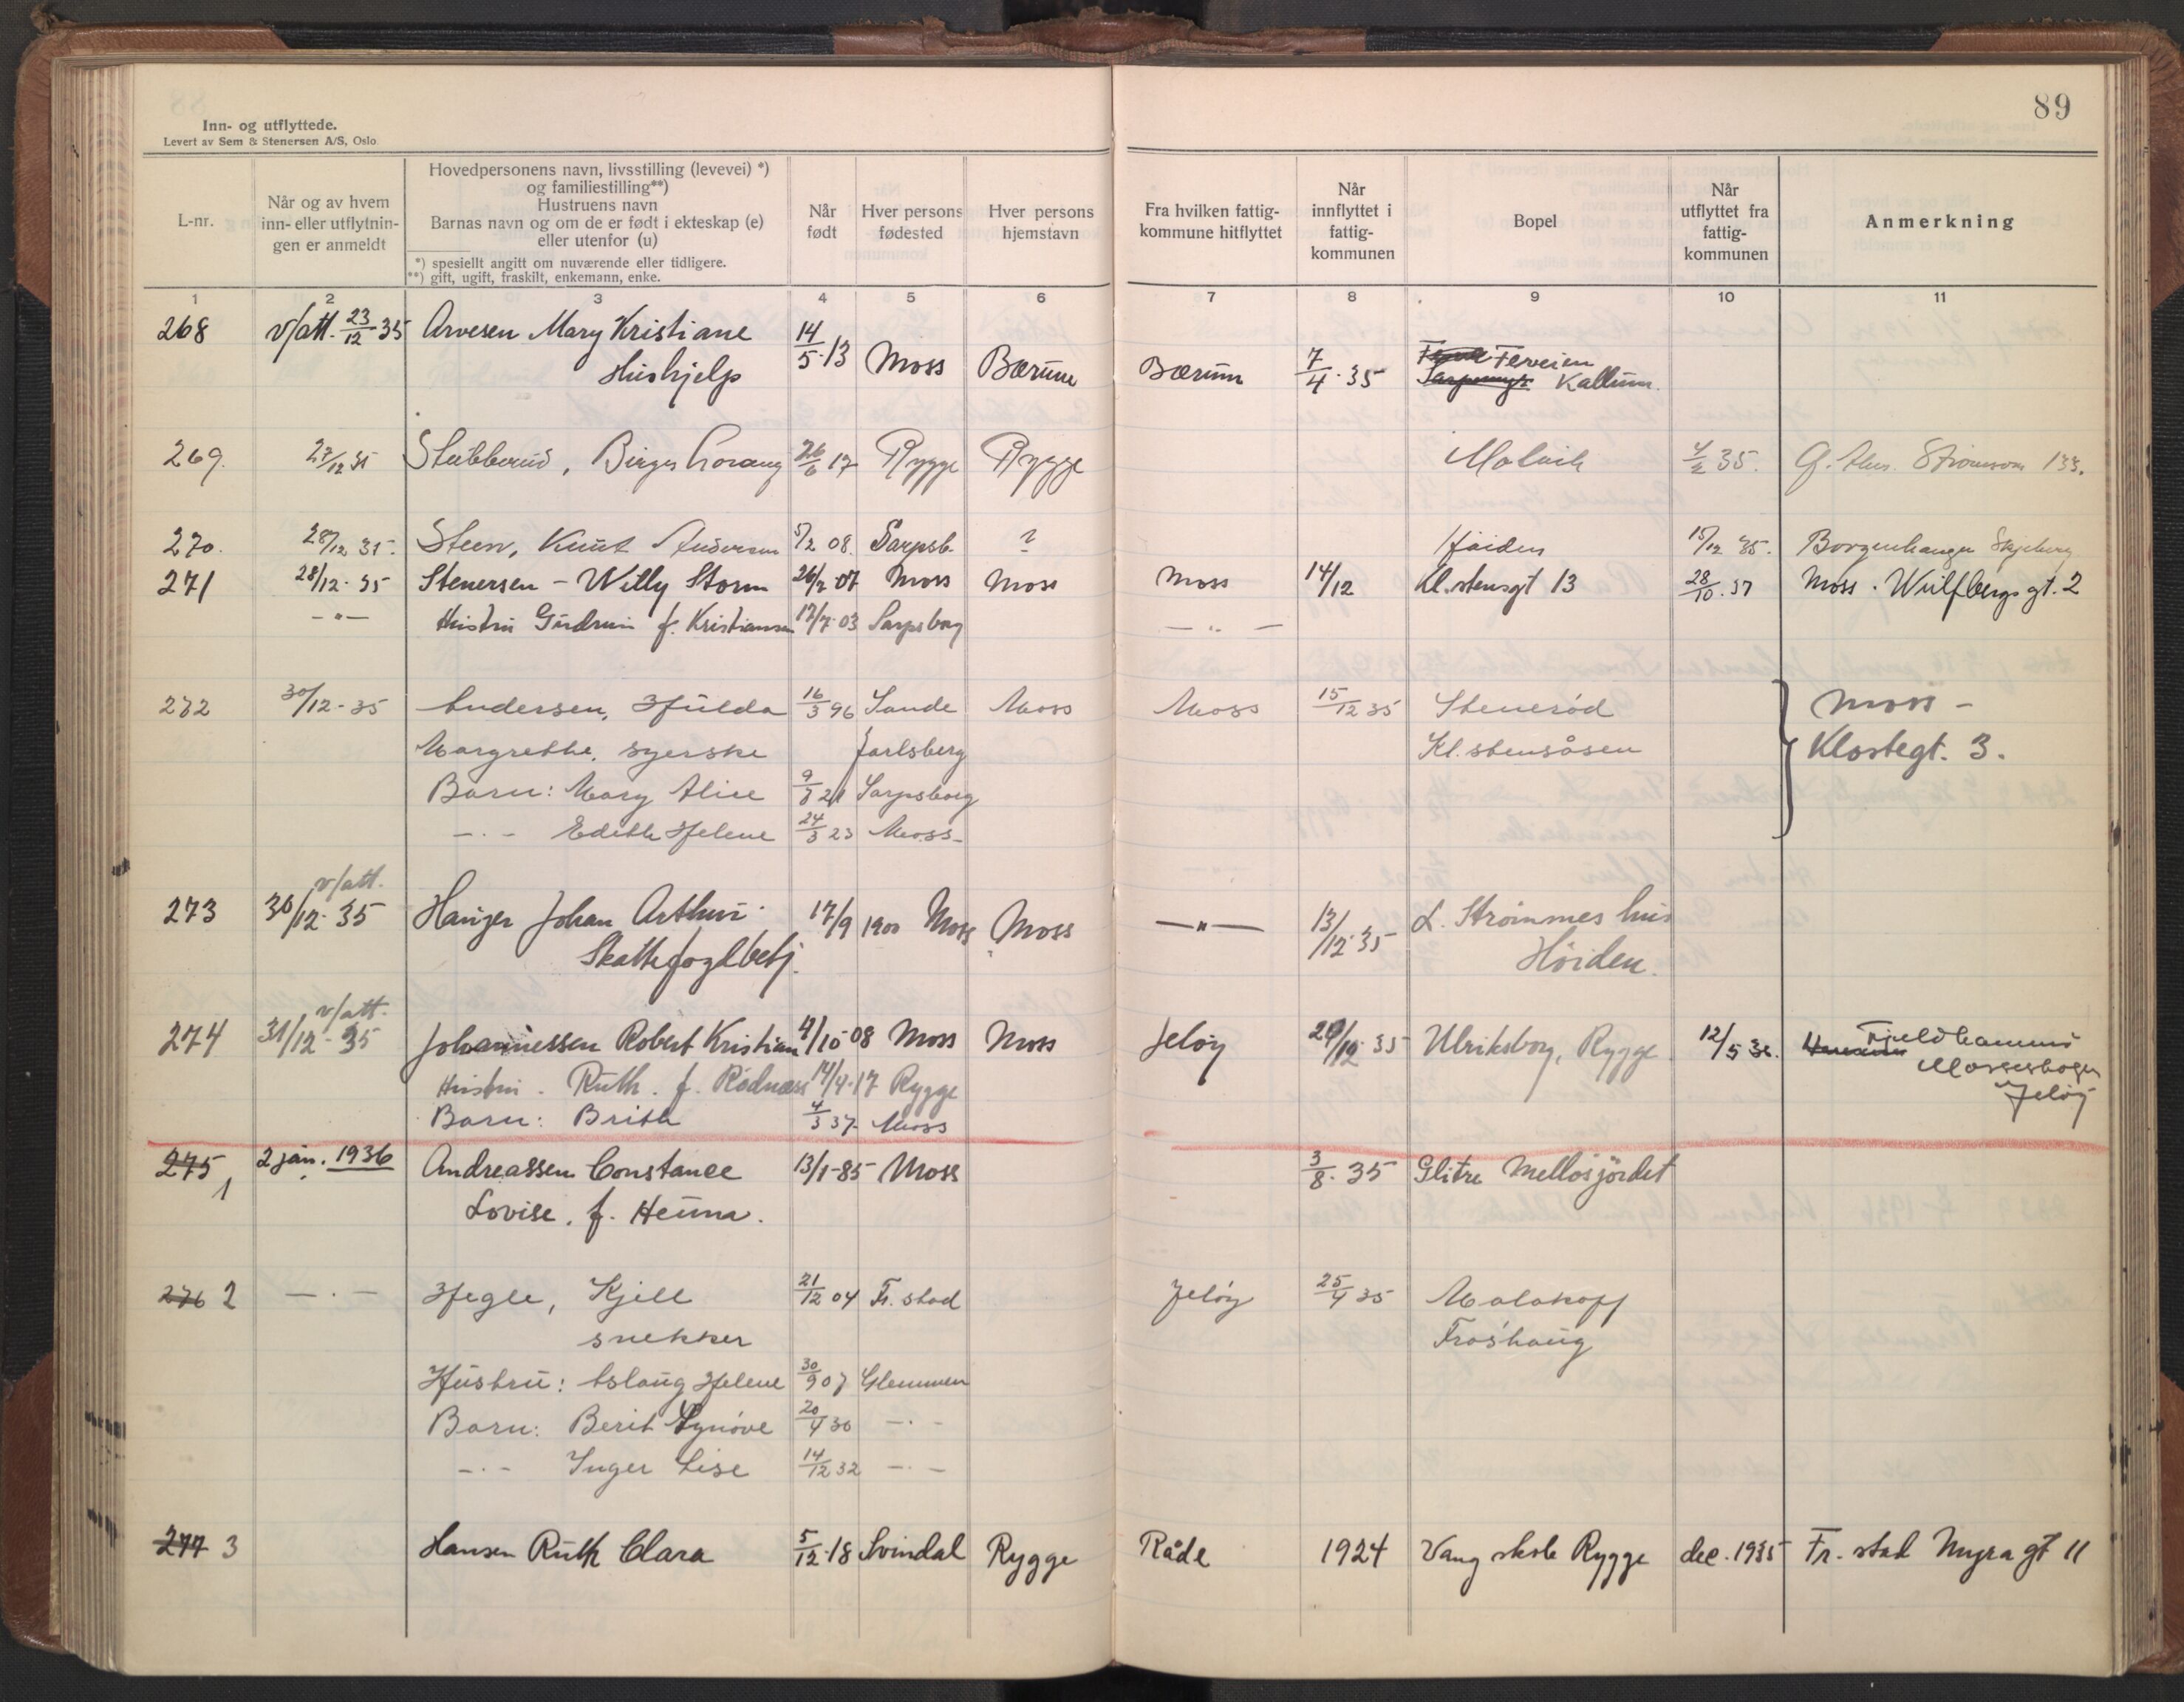 89
Inn- og utflyttede.
Levert av Sem & Stenersen A/S, Oslo
L-nr.
Når og av hvem inn- eller utflytnin-gen er anmeldt
Hovedpersonens navn, livsstilling (levevei) *)
og familiestilling**)
Hustruens navn
Barnas navn og om de er født i ekteskap (e)
eller utenfor (u)
*) spesiellt angitt om nuværende eller tidligere.
**) gift, ugift, fraskilt, enkemann, enke.
Når født
Hver persons fødested
Hver persons hjemstavn
Fra hvilken fattig-kommune hitflyttet
Når innflyttet i fattig-kommunen
Bopel
Når utflyttet fra fattig-kommunen
Anmerkning
1 2 3 4 5 6 7 8 9 10 11
268 v/att. 23/12 35 Arvesen Mary Kristiane 14/5-13 Moss Bærum Bærum 7/4-35 Ferveien
Hushjelp Kallum.
269. 27/12 35 Stubberud, Birger 26/6 17 Rygge Rygge Malvik 4/2 35. G. Thes. Strømson 133.
270. 28/12 35. Steen, Knut Andersen 5/2 08. Sarpsb. ? Høiden 15/12 35. Borgenhaugen Skjeberg
271 28/12-35 Stenersen - Willy Storm 26/2-07 Moss Moss Moss 14/12 Kl.stensgt 13 28/10-37 Moss. Wulfbergs gt. 2
-"- Hustru Gudrun f. Kristiansen 17/7-03 Sarpsborg - " -
272 30/12-35 Andersen, Hulda 16/3 96 Sande Moss Moss 15/12 35 Stenerød Moss -
Margrethe, syerske Jarlsberg Kl.stensåsen Klostegt. 3.
Barn: Mary Alice 9/8 21 Sarpsborg
-.- Edith Helene 24/3 23 Moss-
v/att.
273 30/12-35 Hauger Johan Arthur 17/9 1900 Moss Moss -"- 13/12-35 L. Strømmes hus
Skattefogdbetj. Høiden.
v/att.
274 31/12-35 Johannessen Robert Kristian 4/10-08 Moss Moss Jeløy 20/12 35 Ulriksborg, Rygge 12/5 36. Fjeldhammer
Hustru. Ruth. f. Rødnæss 14/4-17 Rygge Mosseskogen
Barn: Brith 4/3 37 Moss Jeløy
275 1 2 jan. 1936 Andreassen Constance 13/1-85 Moss 3/8-35 Glitre Mellosjördet
Lovise, f. Heuna.
276 2 -.- Hegle, Kjell 21/12 04 Fr.stad Jeløy 25/4 35 Malakoff
snekker Froshaug
Hustru: Aslaug Helene 30/9 07 Glemmen
Barn: Berit Synøve 20/4 30 -.-
-.- Inger Lise 14/12 32 -.-
277 3 Hansen Ruth Clara 5/12-18 Svindal Rygge Råde 1924 Vang skole Rygge dec. 1935 Fr.stad Nygra gt 11